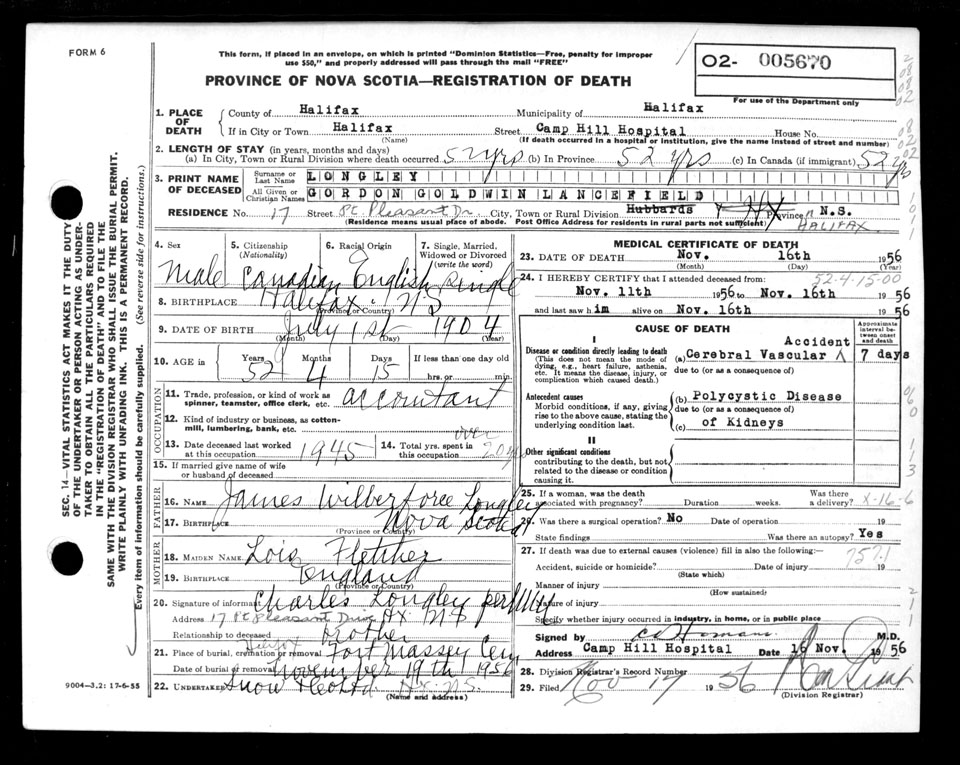 FORM 6
This form, if placed in an envelope, on which is printed "Dominion Statistics—Free, penalty for improper
use $50," and properly addressed will pass through the mail "FREE"
PROVINCE OF NOVA SCOTIA—REGISTRATION OF DEATH
O2- 005670
For use of the Department only
1. PLACE OF DEATH
County of Halifax Municipality of Halifax
If in City or Town Halifax Street Camp Hill Hospital House No.
(Name) (If death occurred in a hospital or institution, give the name instead of street and number)
2. LENGTH OF STAY (in years, months and days)
(a) In City, Town or Rural Division where death occurred 52 yrs (b) In Province 52 yrs (c) In Canada (if immigrant) 52 yrs
3. PRINT NAME OF DECEASED
Surname or Last Name LONGLEY
All Given or Christian Names GORDON GOLDWIN LANCEFIELD
RESIDENCE No. 17 Street Pt Pleasant Dr. City, Town or Rural Division Hubbards Hx Province N.S.
(Residence means usual place of abode. Post Office Address for residents in rural parts not sufficient) HALIFAX
4. Sex Male
5. Citizenship (Nationality) Canadian
6. Racial Origin English
7. Single, Married, Widowed or Divorced (write the word) Single
8. BIRTHPLACE Halifax N S
(Province or Country)
9. DATE OF BIRTH July 1st 1904
(Month) (Day) (Year)
10. AGE in Years 52 Months 4 Days 15 If less than one day old hrs. or min.
OCCUPATION
11. Trade, profession, or kind of work as spinner, teamster, office clerk, etc. accountant
12. Kind of industry or business, as cotton-mill, lumbering, bank, etc.
13. Date deceased last worked at this occupation 1945
14. Total yrs. spent in this occupation over 20 yrs
15. If married give name of wife or husband of deceased
FATHER
16. NAME James Wilberforce Longley
17. BIRTHPLACE Nova Scotia
(Province or Country)
MOTHER
18. MAIDEN NAME Lois Fletcher
19. BIRTHPLACE England
(Province or Country)
20. Signature of informant Charles Longley per
Address 17 Pt Pleasant Drive Hx N S
Relationship to deceased brother
21. Place of burial, cremation or removal Halifax Fort Massey Cem
Date of burial or removal November 19th 1956
22. UNDERTAKER Snow & Co Ltd Hx. N.S.
(Name and address)
9004-3,2: 17-6-55
MEDICAL CERTIFICATE OF DEATH
23. DATE OF DEATH Nov. 16th 1956
(Month) (Day) (Year)
24. I HEREBY CERTIFY that I attended deceased from: 52-4-15-00
Nov. 11th 1956 to Nov. 16th 1956
and last saw him alive on Nov. 16th 1956
CAUSE OF DEATH
Approximate interval between onset and death
I
Disease or condition directly leading to death
(This does not mean the mode of dying, e.g., heart failure, asthenia, etc. It means the disease, injury, or complication which caused death.)
(a) Cerebral Vascular Accident 7 days
due to (or as a consequence of)
Antecedent causes
Morbid conditions, if any, giving rise to the above cause, stating the underlying condition last.
(b) Polycystic Disease
due to (or as a consequence of)
(c) of Kidneys
II
Other significant conditions
contributing to the death, but not related to the disease or condition causing it.
25. If a woman, was the death associated with pregnancy? Duration weeks. Was there a delivery? X-16-6
26. Was there a surgical operation? No Date of operation 19
State findings Was there an autopsy? Yes
27. If death was due to external causes (violence) fill in also the following:— 757.1
Accident, suicide or homicide? Date of injury 19
(State which)
Manner of injury
(How sustained)
Nature of injury
Specify whether injury occurred in industry, in home, or in public place
Signed by M.D.
Address Camp Hill Hospital Date 16 Nov. 1956
28. Division Registrar's Record Number
29. Filed Nov 19 1956
(Division Registrar)
SEC. 14—VITAL STATISTICS ACT MAKES IT THE DUTY
OF THE UNDERTAKER OR PERSON ACTING AS UNDER-
TAKER TO OBTAIN ALL THE PARTICULARS REQUIRED
IN THE "REGISTRATION OF DEATH" AND TO FILE THE
SAME WITH THE DIVISION REGISTRAR WHO SHALL ISSUE THE BURIAL PERMIT.
WRITE PLAINLY WITH UNFADING INK. THIS IS A PERMANENT RECORD.
Every item of information should be carefully supplied. (See reverse side for instructions.)